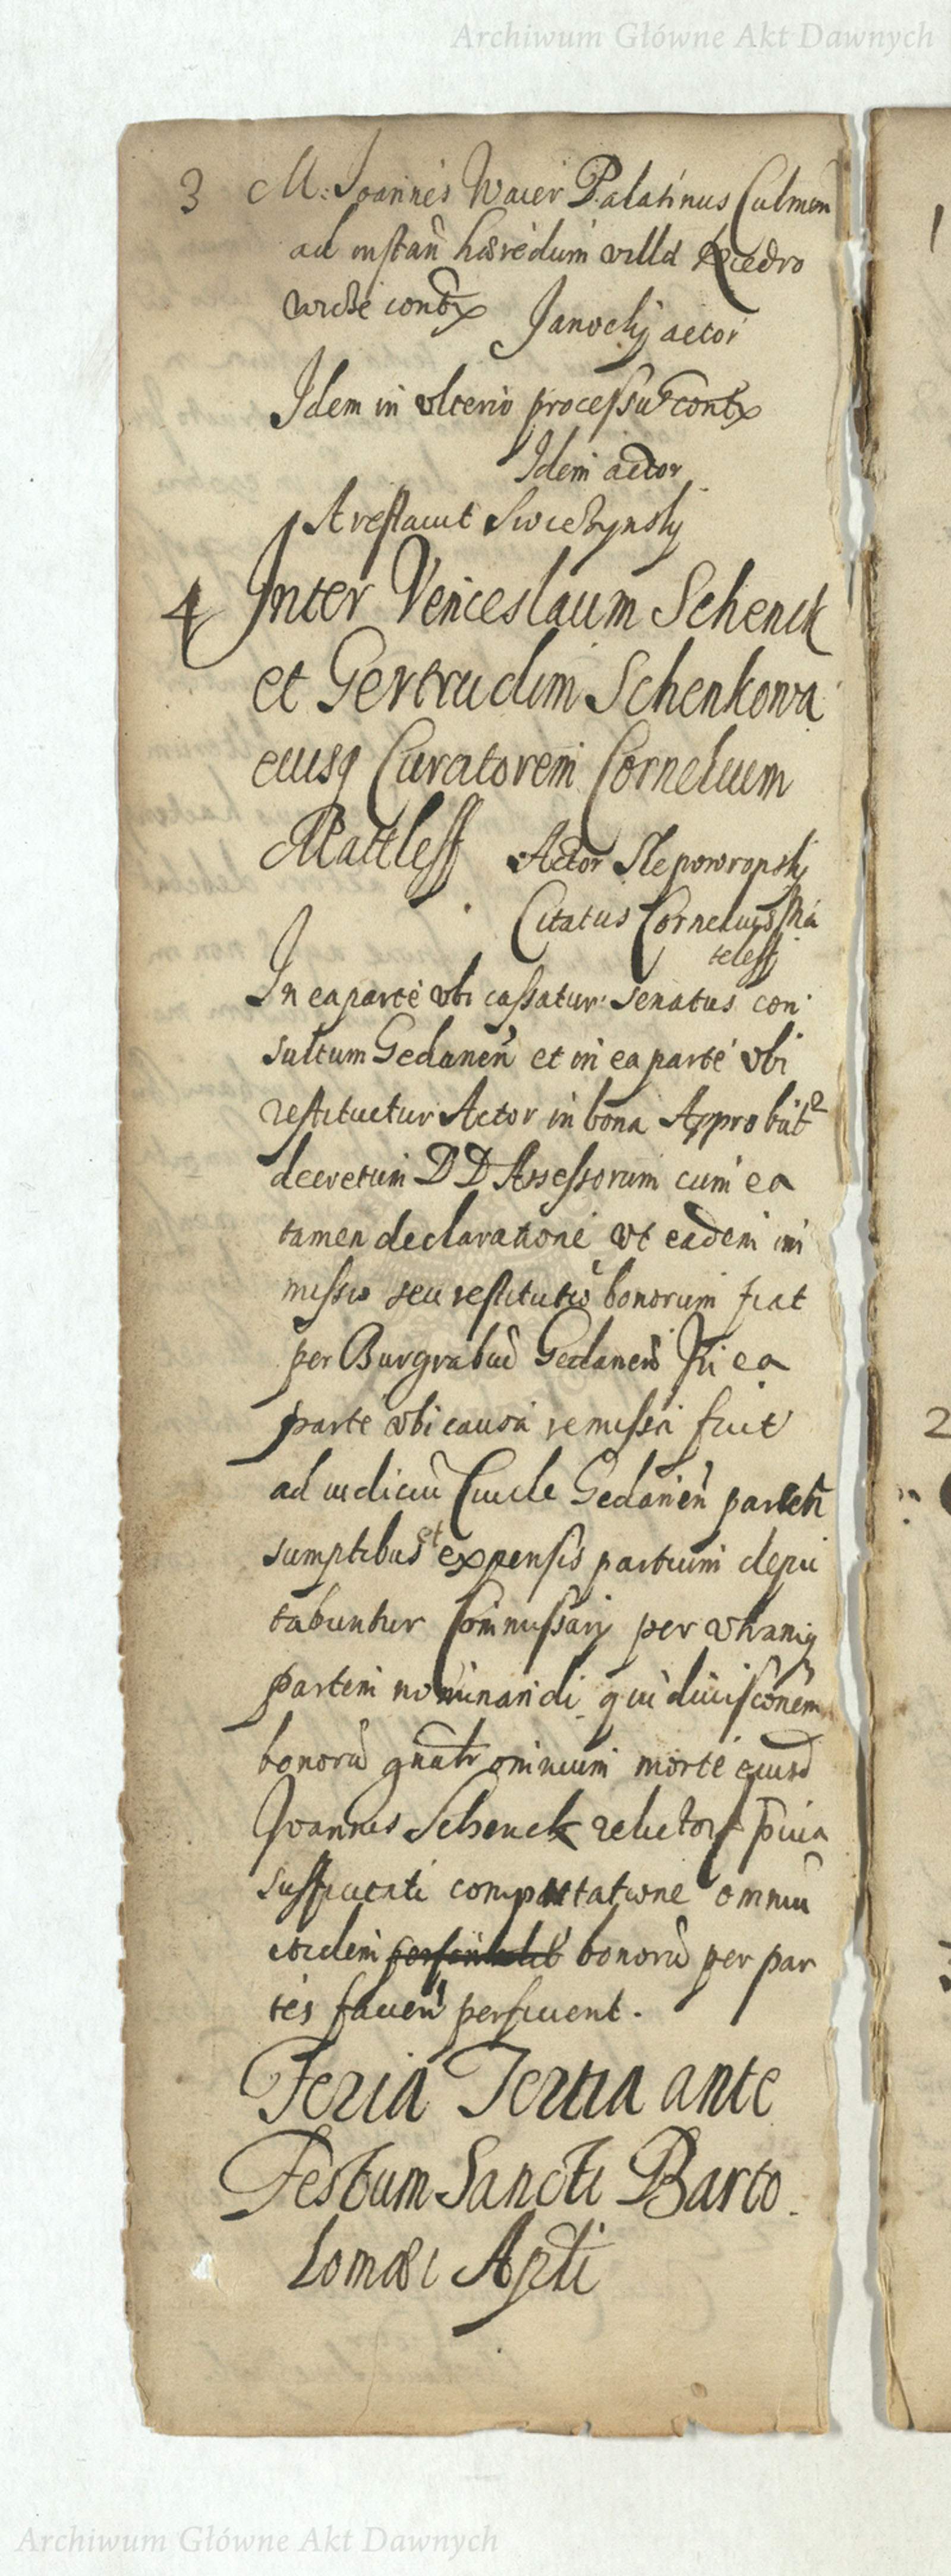 Archiwum Główne Akt Dawnych
3 M: Joannes Waier Palatinus Culmen
ad instan hæredum villa
wicze contx Janocky actor
Idem in vlterio processu contx
Idem actor
Arestauit Swiezynsky
4 Inter Venceslaum Schenck
et Gertrudim Schenkowa
eiusq Curatorem Cornelium
Mattleff Actor Slepowronsky
Citatus Cornelius Ma
teleff
In ea parte vbi cassatur Senatus con
sultum Gedanen et in ea parte vbi
restituetur Actor in bona Approbat
decretum DD Assessorum cum ea
tamen declaratione vt eadem im
missio seu restitutio bonorum fiat
per Burgrabiu Gedanen In ea
parte vbi causa remissa fuit
ad iudiciu Ciuile Gedanen
sumptibus et expensis partium depu
tabuntur Commissarij per vtramq
partem nominandi qui diuisionem
bonoru omnium morte eiusd
Joannis Schenck relictor
computatione omniu
ibidem bonoru per par
tes
Feria Tertia ante
Festum Sancti Barto
lomæi Apti
1
2
Archiwum Główne Akt Dawnych